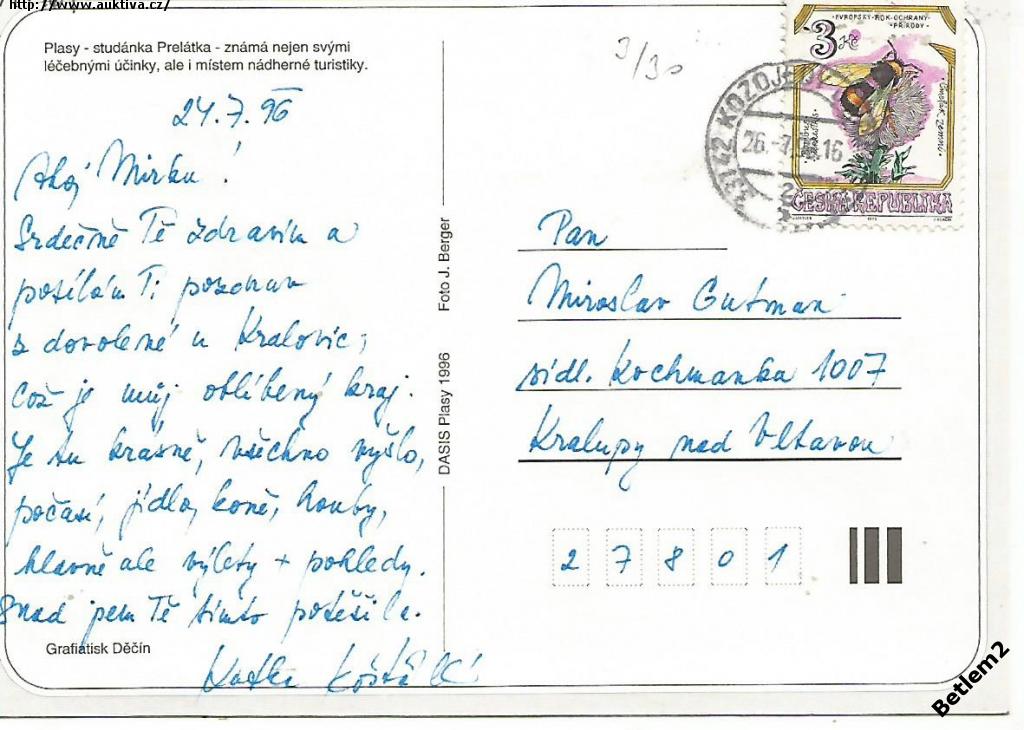 http://www.auktiva.cz/
Plasy - studánka Prelátka - známá nejen svými
léčebnými účinky, ale i místem nádherné turistiky.
3/30
24.7.96
Ahoj Mirku!
Srdečně Tě zdravím a
posílám Ti pozdrav
z dovolené u Kralovic,
což je můj oblíbený kraj.
Je tu krásně, všechno vyšlo,
počasí, jídlo, koně, houby,
hlavně ale výlety + pohledy.
Snad jsem Tě tímto potěšila.
Katka
Grafiatisk Děčín
Foto J. Berger
DASIS Plasy 1996
EVROPSKÝ ROK OCHRANY
PŘÍRODY
3 Kč
Čmelák zemní
ČESKÁ REPUBLIKA
331 42 KOZOJEDY
26.-7. 16
Pan
Miroslav Gutman
sídl. Kochmanka 1007
Kralupy nad Vltavou
2 7 8 0 1
Betlem2